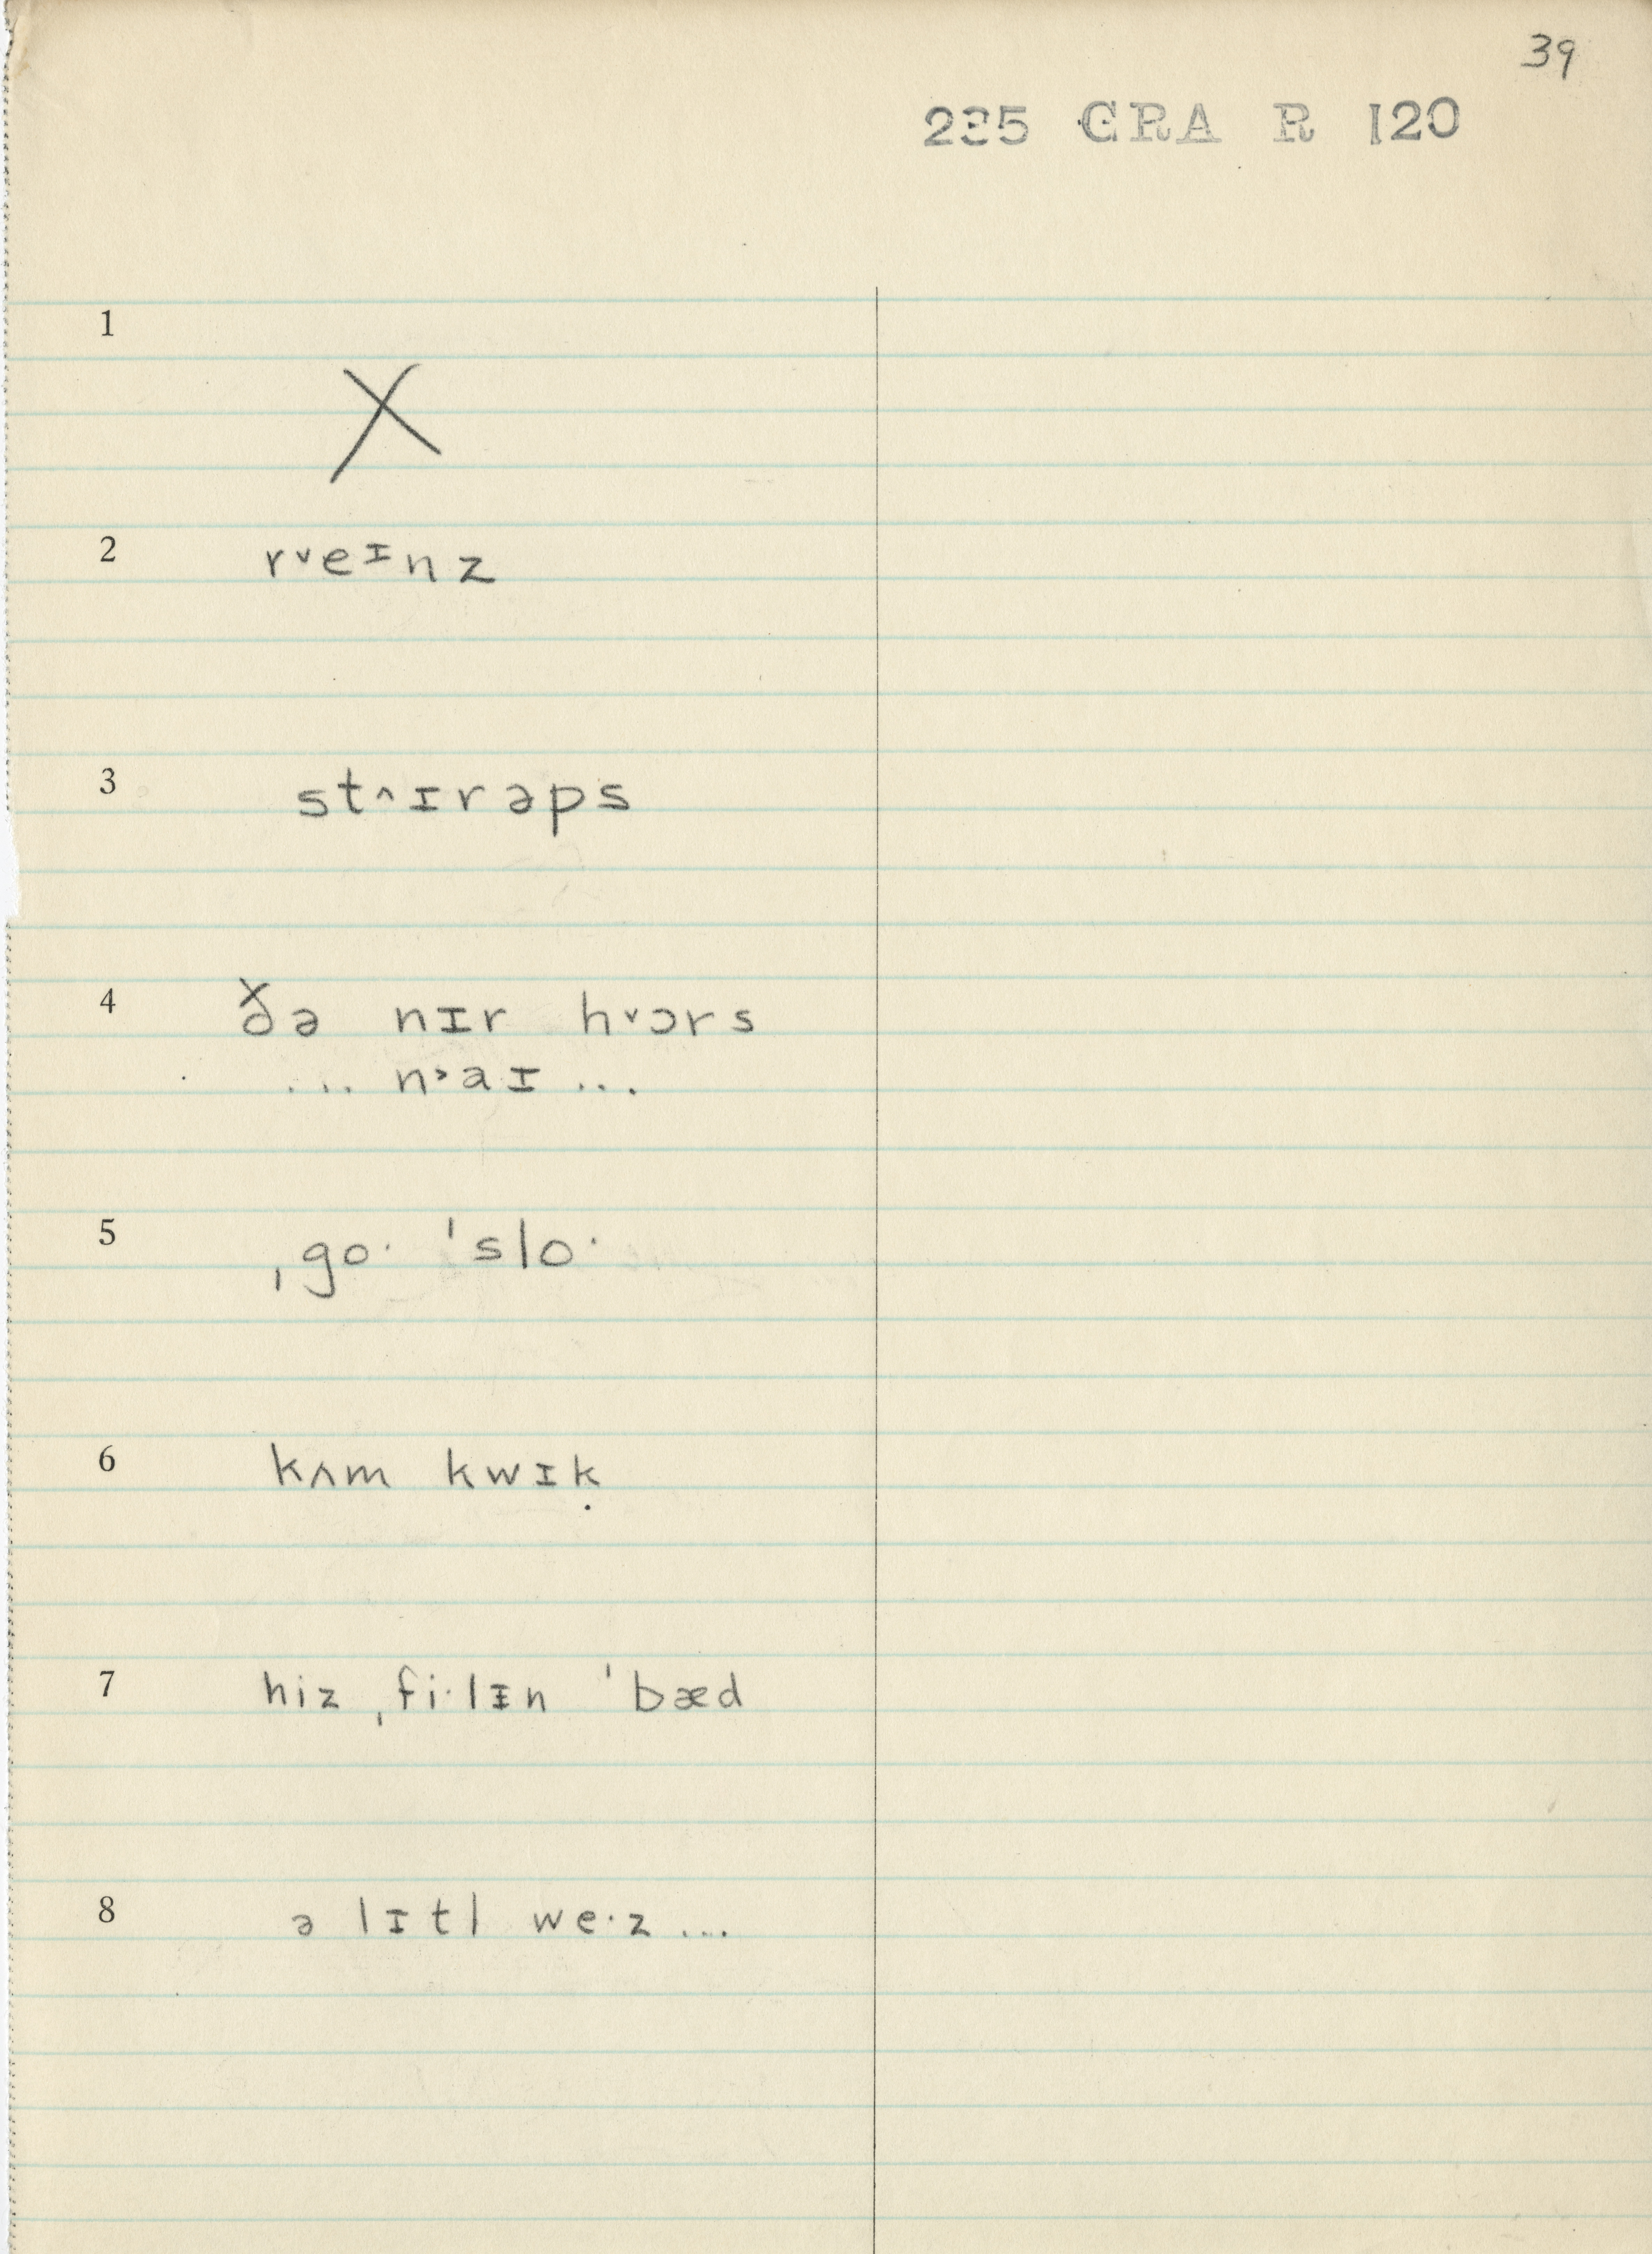 39
235 GRA R 120
1
X
2 r˅eɪnz
3 st˄ɪrəps
4 ðə nɪr h˅ɔrs
... n˃aɪ ...
5 ˌgo· ˈslo·
6 kʌm kwɪk
7 hiz ˌfi·lɪn ˈbæd
8 ə lɪtl we·z ...